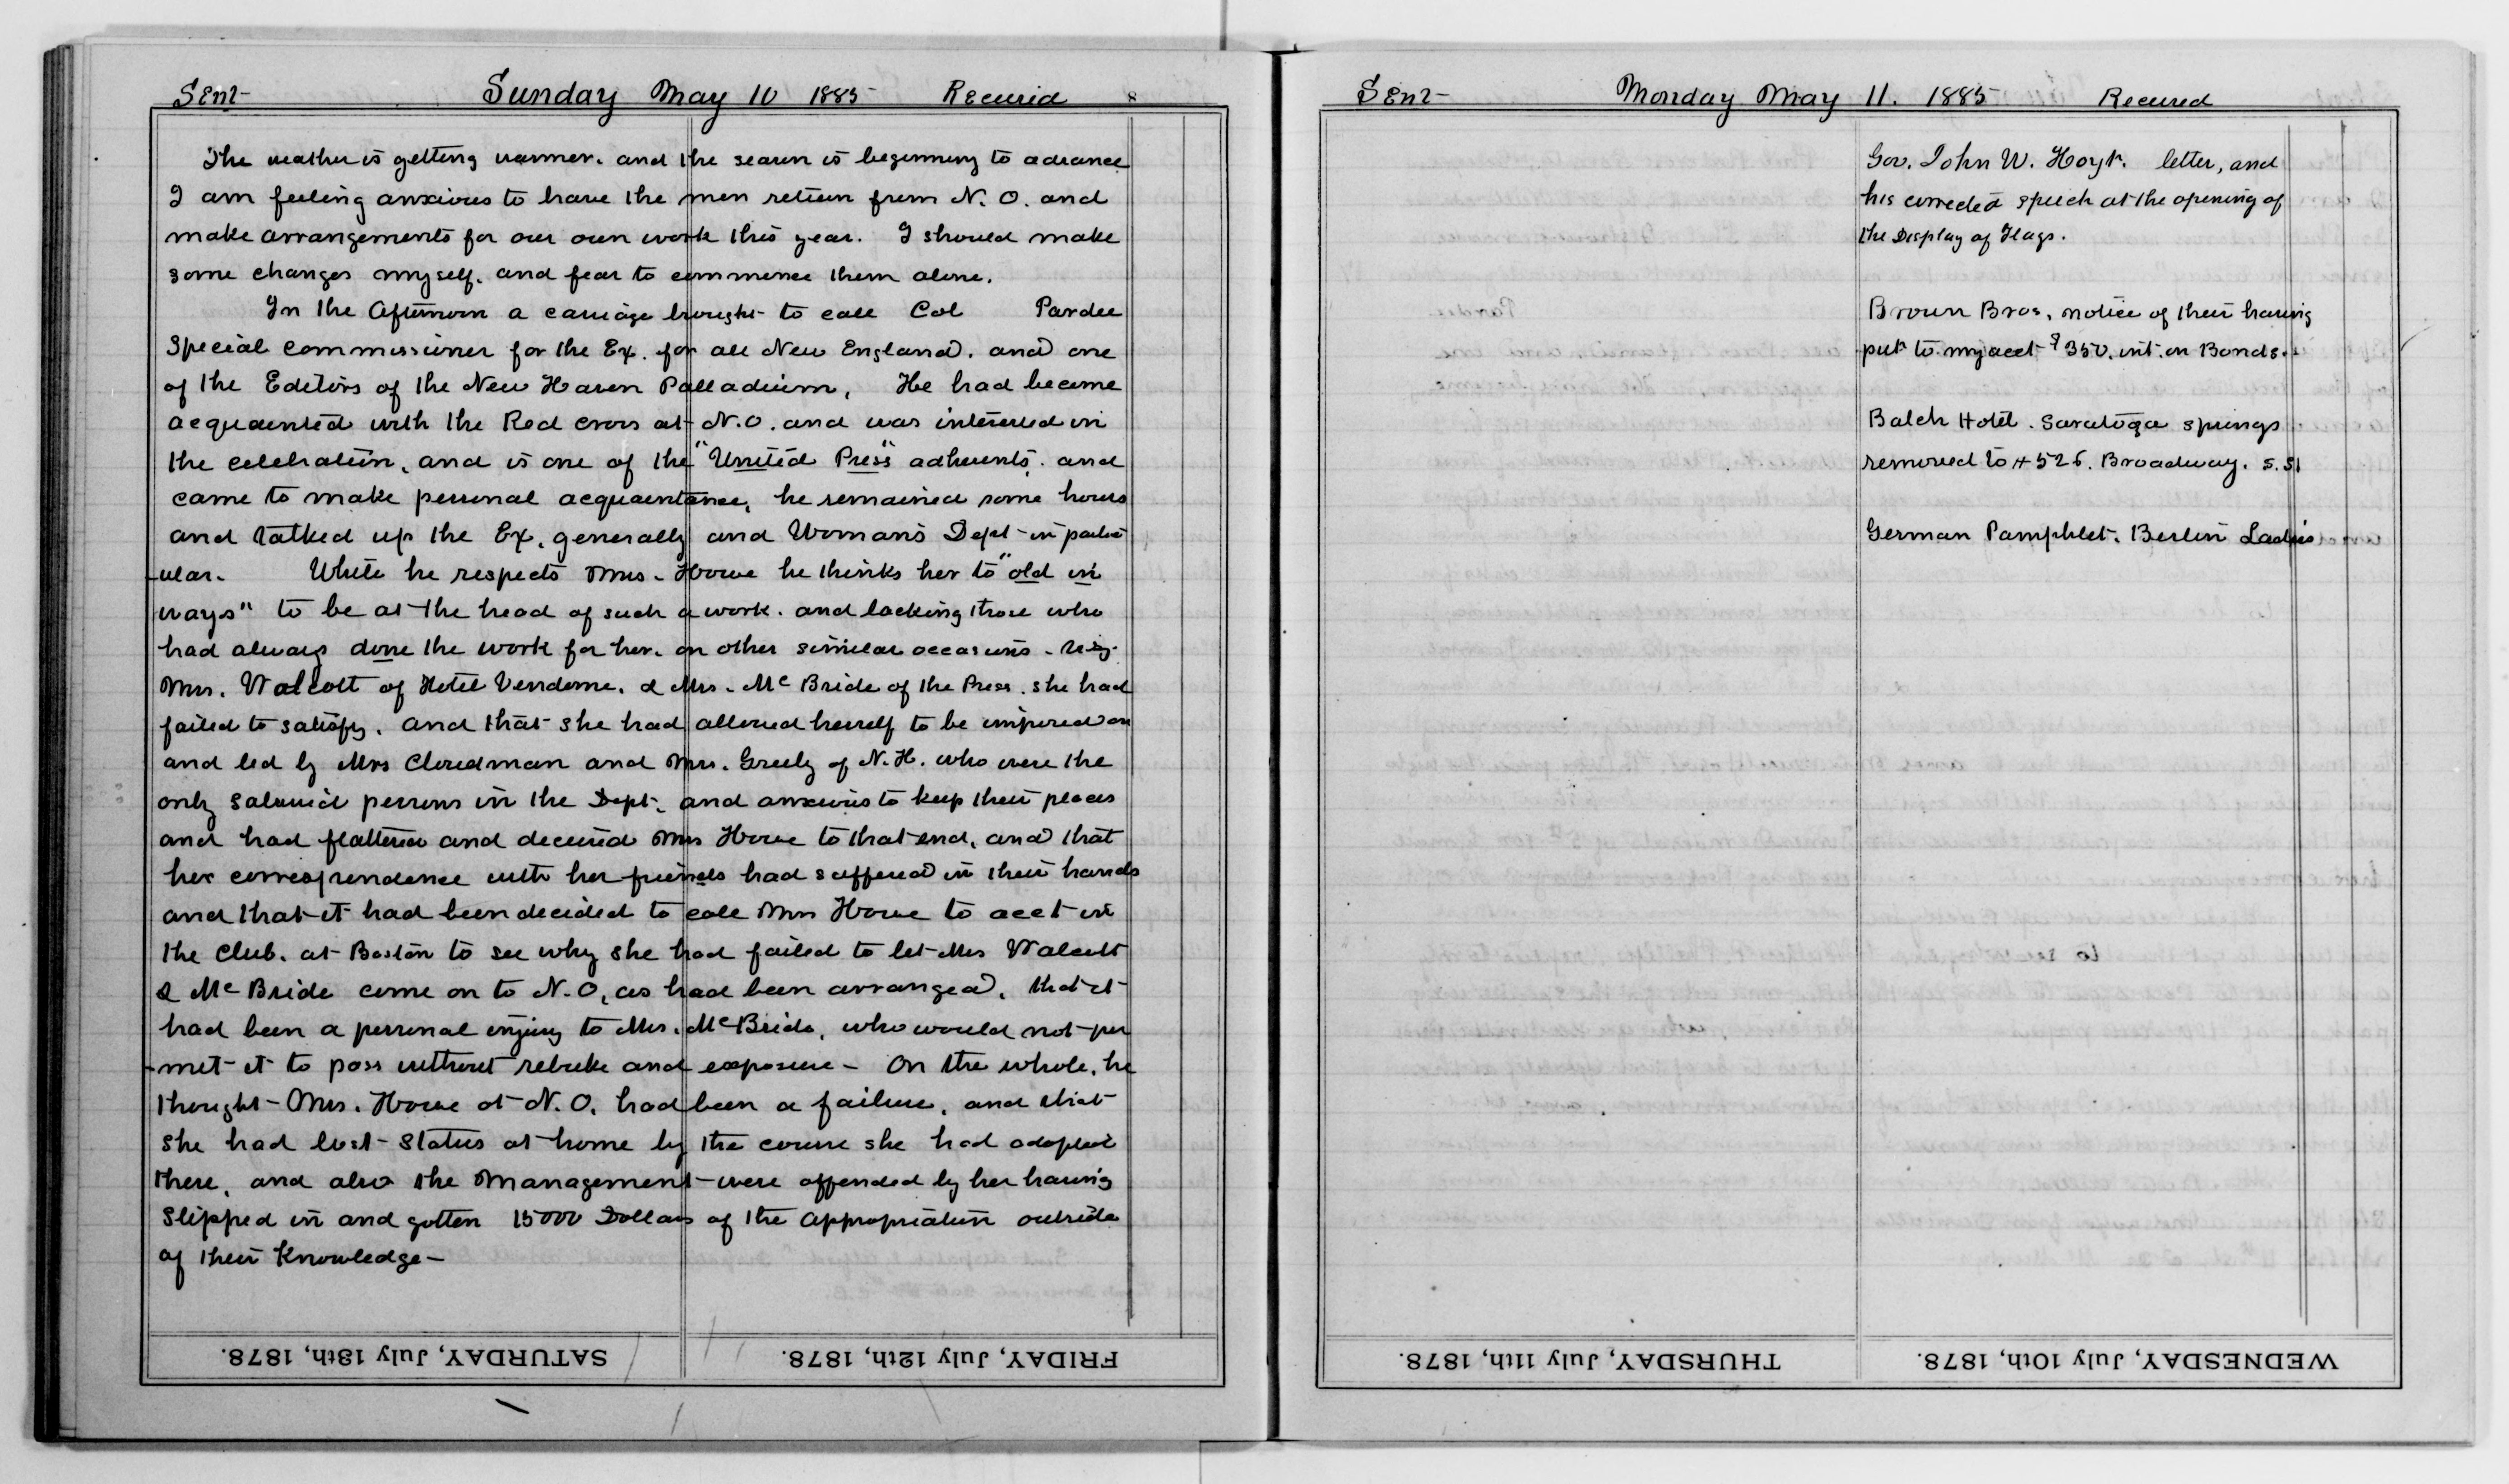 Sent Sunday May 10 1885 Received
The weather is getting warmer. and the season is beginning to advance
I am feeling anxious to have the men return from N. O. and
make arrangements for our own work this year. I should make
some changes myself. and fear to commence them alone.
In the Afternoon a carriage brought to call Col Pardee
Special commissioner for the Ex. for all New England. and one
of the Editors of the New Haven Palladium, He had become
acquainted with the Red cross at N.O. and was interested in
the celebration, and is one of the "United Press" adherents. and
came to make personal acquaintance, he remained some hours
and talked up the Ex. generally and Womans Dept in partic
-ular. While he respects Mrs. Howe he thinks her to "old in
ways" to be at the head of such a work. and lacking those who
had always done the work for her. on other similar occasions -
Mrs. Walcott of Hotel Vendome. & Mrs. Mc Bride of the Press. she had
failed to satisfy. and that she had allowed herself to be imposed on
and led by Mrs Cloudman and Mrs. Greely of N. H. who were the
only salaried persons in the Dept. and anxious to keep their places
and had flattered and deceived Mrs Howe to that end, and that
her correspondence with her friends had suffered in their hands
and that it had been decided to call Mrs Howe to acct in
the Club. at Boston to see why she had failed to let Mrs Walcott
& Mc Bride come on to N. O, as had been arranged, that it
had been a personal injury to Mrs. McBride, who would not per
-mit it to pass without rebuke and exposure - On the whole, he
thought Mrs. Howe at N. O. had been a failure, and that
she had lost status at home by the course she had adopted
there, and also the Management were offended by her having
Slipped in and gotten 15000 Dollars of the Appropriation outside
of their Knowledge -
SATURDAY, July 13th, 1878.
FRIDAY, July 12th, 1878.
Sent Monday May 11. 1885 Received
Gov. John W. Hoyt. letter, and
his corrected speech at the opening of
the Display of Flags.
Brown Bros, notice of their having
put to my acct $350. int. on Bonds.
Balch Hotel. Saratoga springs
removed to # 526. Broadway. S. St
German Pamphlet. Berlin Ladies
THURSDAY, July 11th, 1878.
WEDNESDAY, July 10th, 1878.